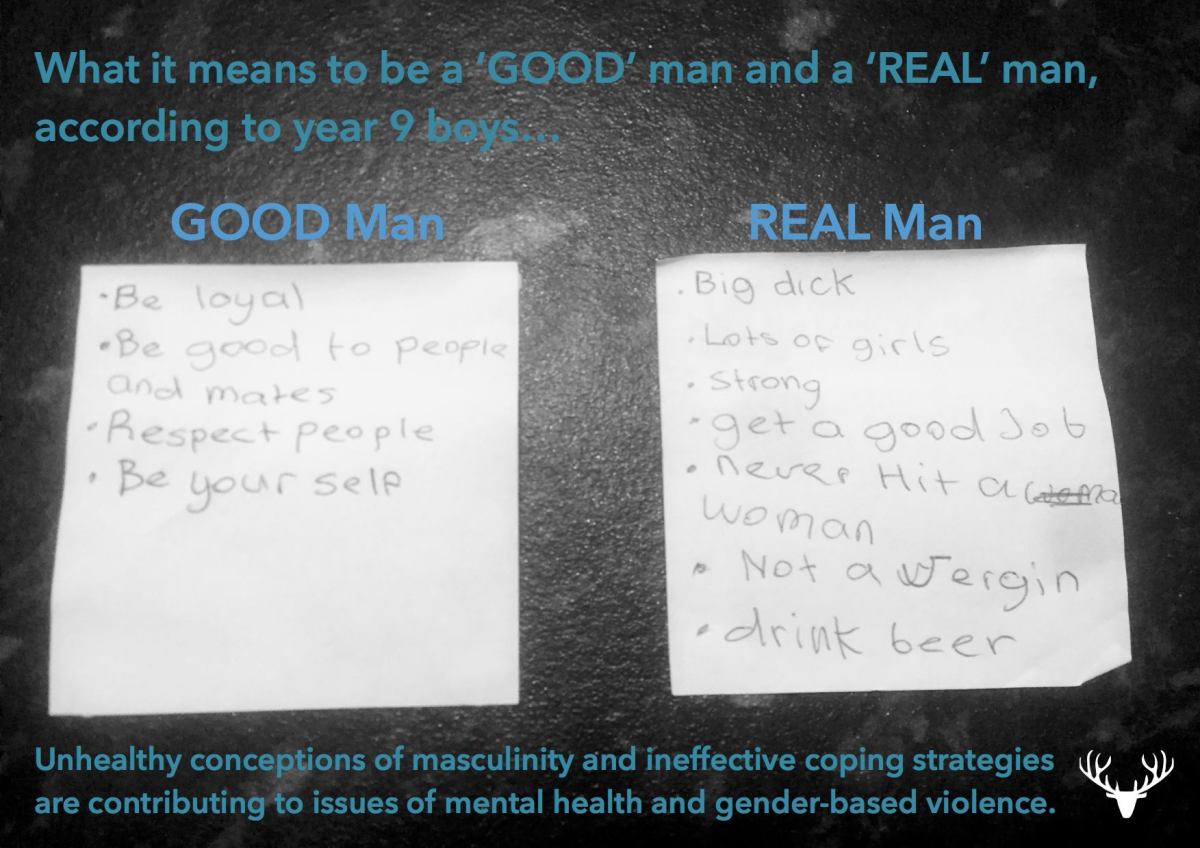 What it means to be a ‘GOOD’ man and a ‘REAL’ man,
according to year 9 boys...
GOOD Man
• Be loyal
• Be good to people
and mates
• Respect people
• Be your self
REAL Man
. Big dick
. Lots of girls
. Strong
• get a good Job
• never Hit a
woman
• Not a Vergin
• drink beer
Unhealthy conceptions of masculinity and ineffective coping strategies
are contributing to issues of mental health and gender-based violence.